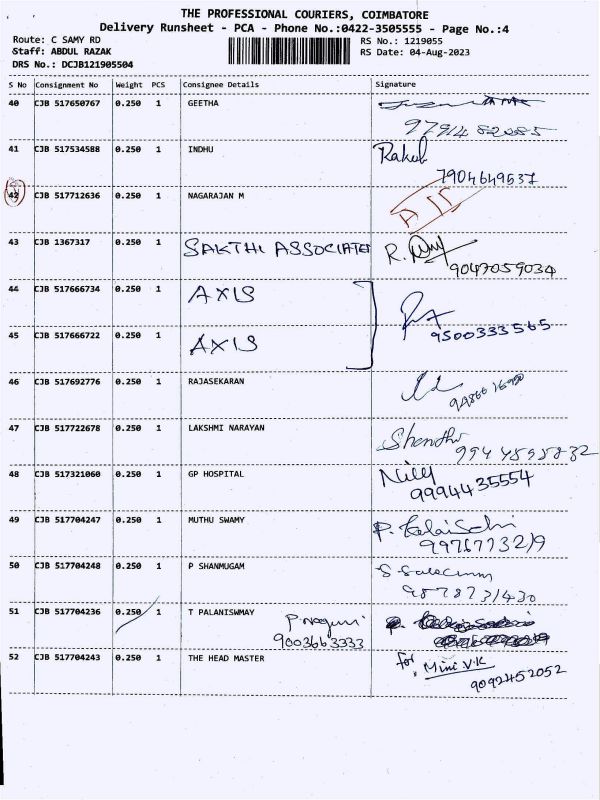 THE PROFESSIONAL COURIERS, COIMBATORE
Delivery Runsheet - PCA - Phone No.:0422-3505555 - Page No.:4
Route: C SAMY RD RS No.: 1219055
Staff: ABDUL RAZAK RS Date: 04-Aug-2023
DRS No.: DCJB121905504
S No Consignment No Weight PCS Consignee Details Signature
40 CJB 517650767 0.250 1 GEETHA
41 CJB 517534588 0.250 1 INDHU Rakul
7904649537
42 CJB 517712636 0.250 1 NAGARAJAN M
43 CJB 1367317 0.250 1 SAKTHI ASSOCIATES R.
9047059034
44 CJB 517666734 0.250 1 AXIS
9500333565
45 CJB 517666722 0.250 1 AXIS
46 CJB 517692776 0.250 1 RAJASEKARAN
47 CJB 517722678 0.250 1 LAKSHMI NARAYAN Shendhi
48 CJB 517321060 0.250 1 GP HOSPITAL
9994435554
49 CJB 517704247 0.250 1 MUTHU SWAMY P. KalaiSelvi
9976773219
50 CJB 517704248 0.250 1 P SHANMUGAM
9878731430
51 CJB 517704236 0.250 1 T PALANISWMAY
9003663333
52 CJB 517704243 0.250 1 THE HEAD MASTER for Mini V.K
9092452052